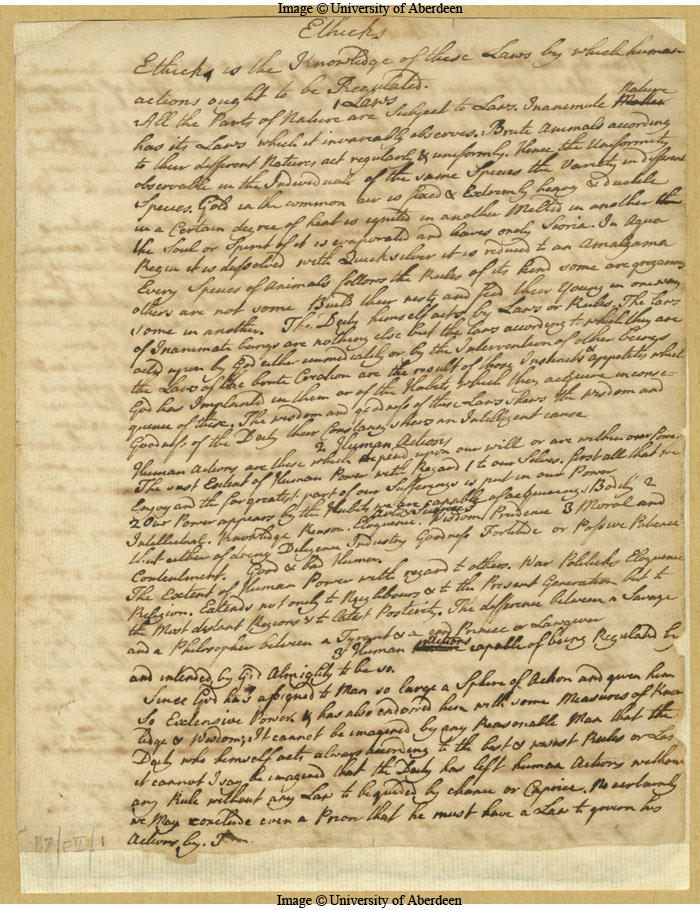 Image © University of Aberdeen
Ethicks
Ethicks is the Knowledge of these Laws by which human
actions ought to be Regulated.
1 Laws
All the Parts of Nature are Subject to Laws. Inanimate Nature
has its Laws which it invariably observes. Brute Animals according
to their different Natures act regularly & uniformly. Hence the Uniformity
observable in the Individuals of the same Species the Variety in different
Species. Gold in the common air is fixed & Extremely heavy & ductile
in a Certain degree of heat is ignited in another Melted in another
the Soul or Spirit of it is evaporated and leaves only Scoria. In Aqua
Regia it is dissolved with Quicksilver it is reduced to an Amalgama
Every Species of Animals follows the Rules of its kind some are gregarious
others are not some Build their nests and feed their Young in one way
some in another. The Deity himself acts by Laws or Rules. The laws
of Inanimate beings are nothing else but the laws according to which they are
acted upon by God either immediately or by the Intervention of other beings
the Laws of the brute Creation are the result of those Instincts appetites which
God has Implanted in them or of the Habits which they acquire in conse-
quence of these. The wisdom and goodness of these Laws shews the wisdom and
Goodness of the Deity their Constancy shews an Intelligent cause
2 Human Actions
Human Actions are these which depend upon our will or are within our Power.
The vast Extent of Human Power with Regard 1 to our Selves. first all that we
Enjoy and the far greatest part of our Sufferings is put in our Power
2 Our Power appears by the Habits we are capable of acquiring 1 Bodily 2
Intellectual. Knowledge Reason. Eloquence. Wisdom Prudence 3 Moral and
that either of doing Diligence Industry Goodness Fortitude or Passive Patience
Contentment. Good & bad Humor.
The Extent of Human Power with regard to others. War Politicks Eloquence
Religion. Extends not only to Neighbours & to the Present Generation but to
the Most distant Regions & to latest Posterity. The difference between a Savage
and a Philosopher between a Tyrant & a good Prince or Lawgiver
3 Human Actions capable of being Regulated by
and intended by God Almighty to be so.
Since God has assigned to Man so large a Sphere of Action and given him
So Extensive Power, & has also endowed him with some Measures of Know
ledge & Wisdom; It cannot be imagined by any Reasonable Man that the
Deity who himself acts always according to the best & wisest Rules or Laws
it cannot I say be imagined that the Deity has left human Actions without
any Rule without any Law to be guided by chance or Caprice. No certainly
we May conclude even a Priori that he must have a Law to govern his
Actions by.
Image © University of Aberdeen